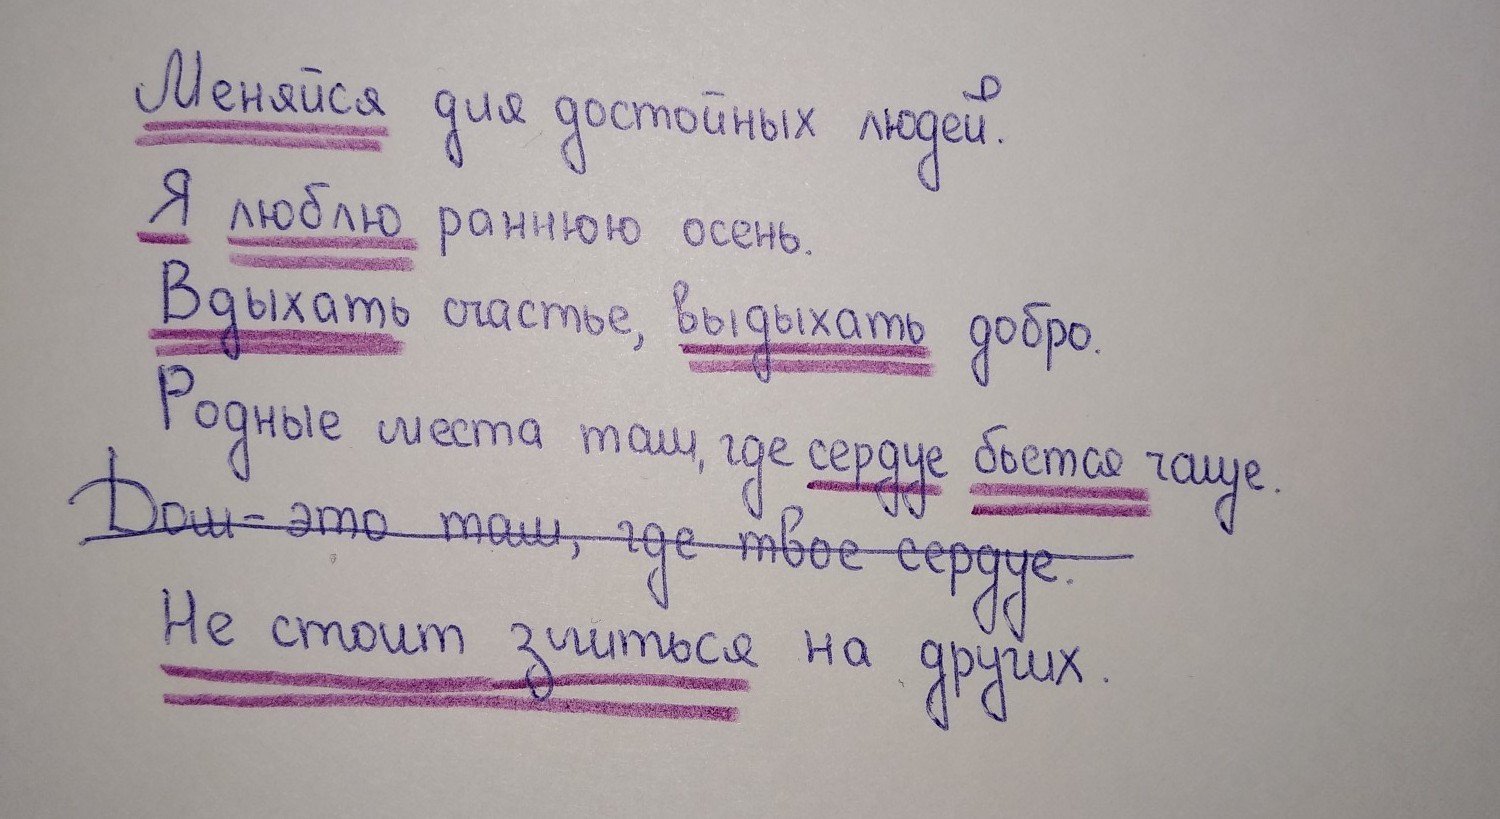 Меняйся для достойных людей.
Я люблю раннюю осень.
Вдыхать счастье, выдыхать добро.
Родные места там, где сердце бьется чаще.
Дом - это там, где твое сердце.
Не стоит злиться на других.